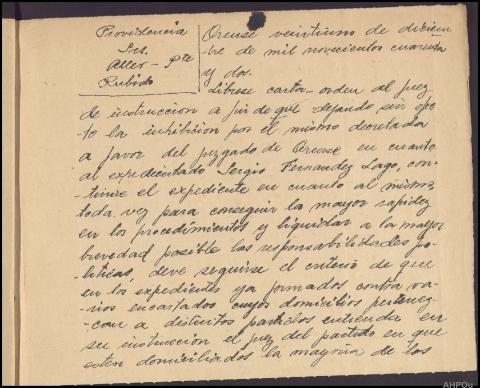 Providencia
Srs.
Aller - Pte
Rubido
Orense veintiuno de diciem
bre de mil novecientos cuarenta
y dos.
Líbrese carta-orden al juez
de instruccion a fin de que dejando sin efec
to la inhibicion por el mismo decretada
a favor del juzgado de Orense en cuanto
al expedientado Sergio Fernandez Lago, con-
tinue el expediente en cuanto al mismo,
toda vez para conseguir la mayor rapidez
en los procedimientos y liquidar a la mayor
brevedad posible las responsabilidades po-
liticas, debe seguirse el criterio de que
en los expedientes ya formados contra va-
rios encartados cuyos domicilios pertenez-
can a distintos partidos entienda en
su instruccion el juez del partido en que
esten domiciliados la mayoria de los
AHPOu